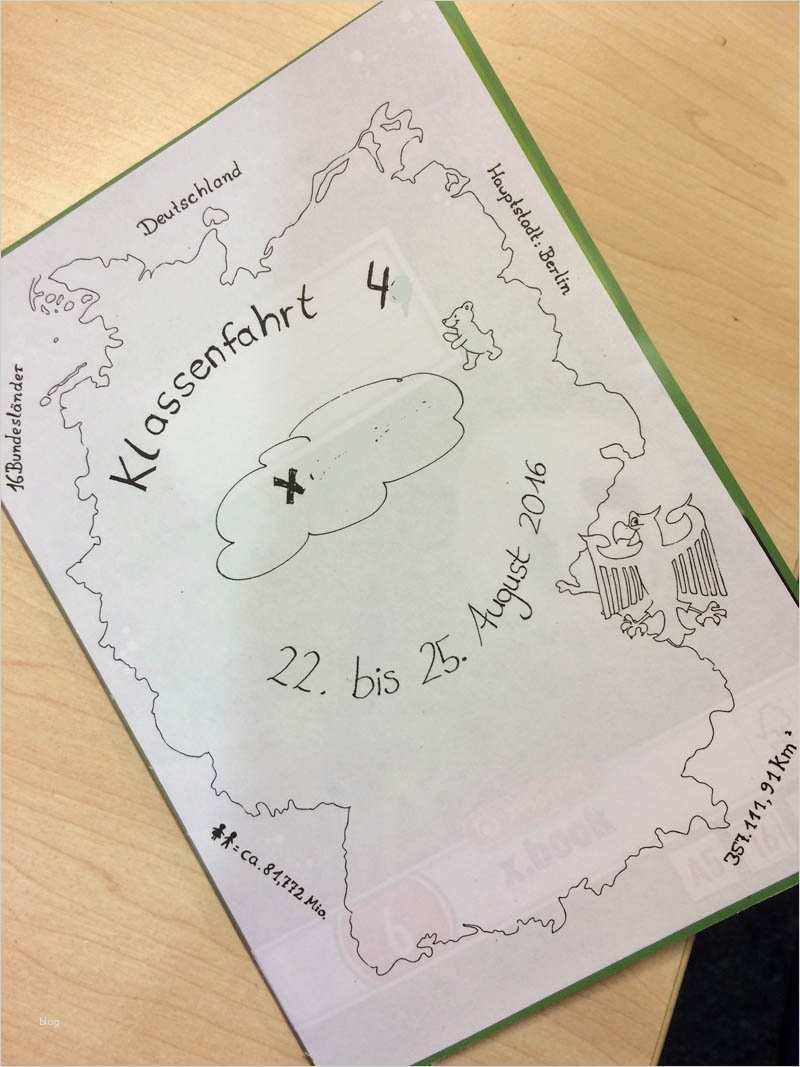 Deutschland
Hauptstadt: Berlin
16 Bundesländer
Klassenfahrt 4
22. bis 25. August 2016
= ca. 81,772 Mio.
357.111,91 Km²
blog